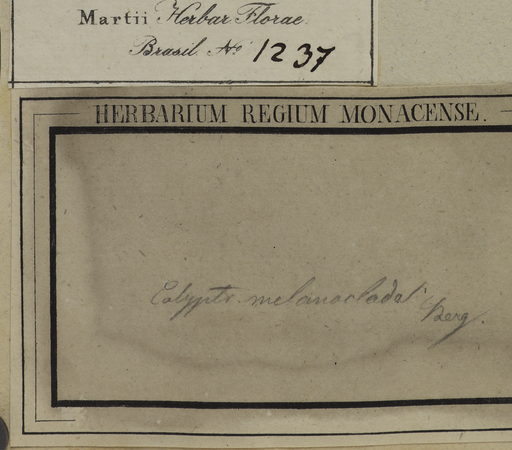 Martii Herbar. Florae
Brasil. No 1237
HERBARIUM REGIUM MONACENSE.
Calyptr. melanoclada
Berg.